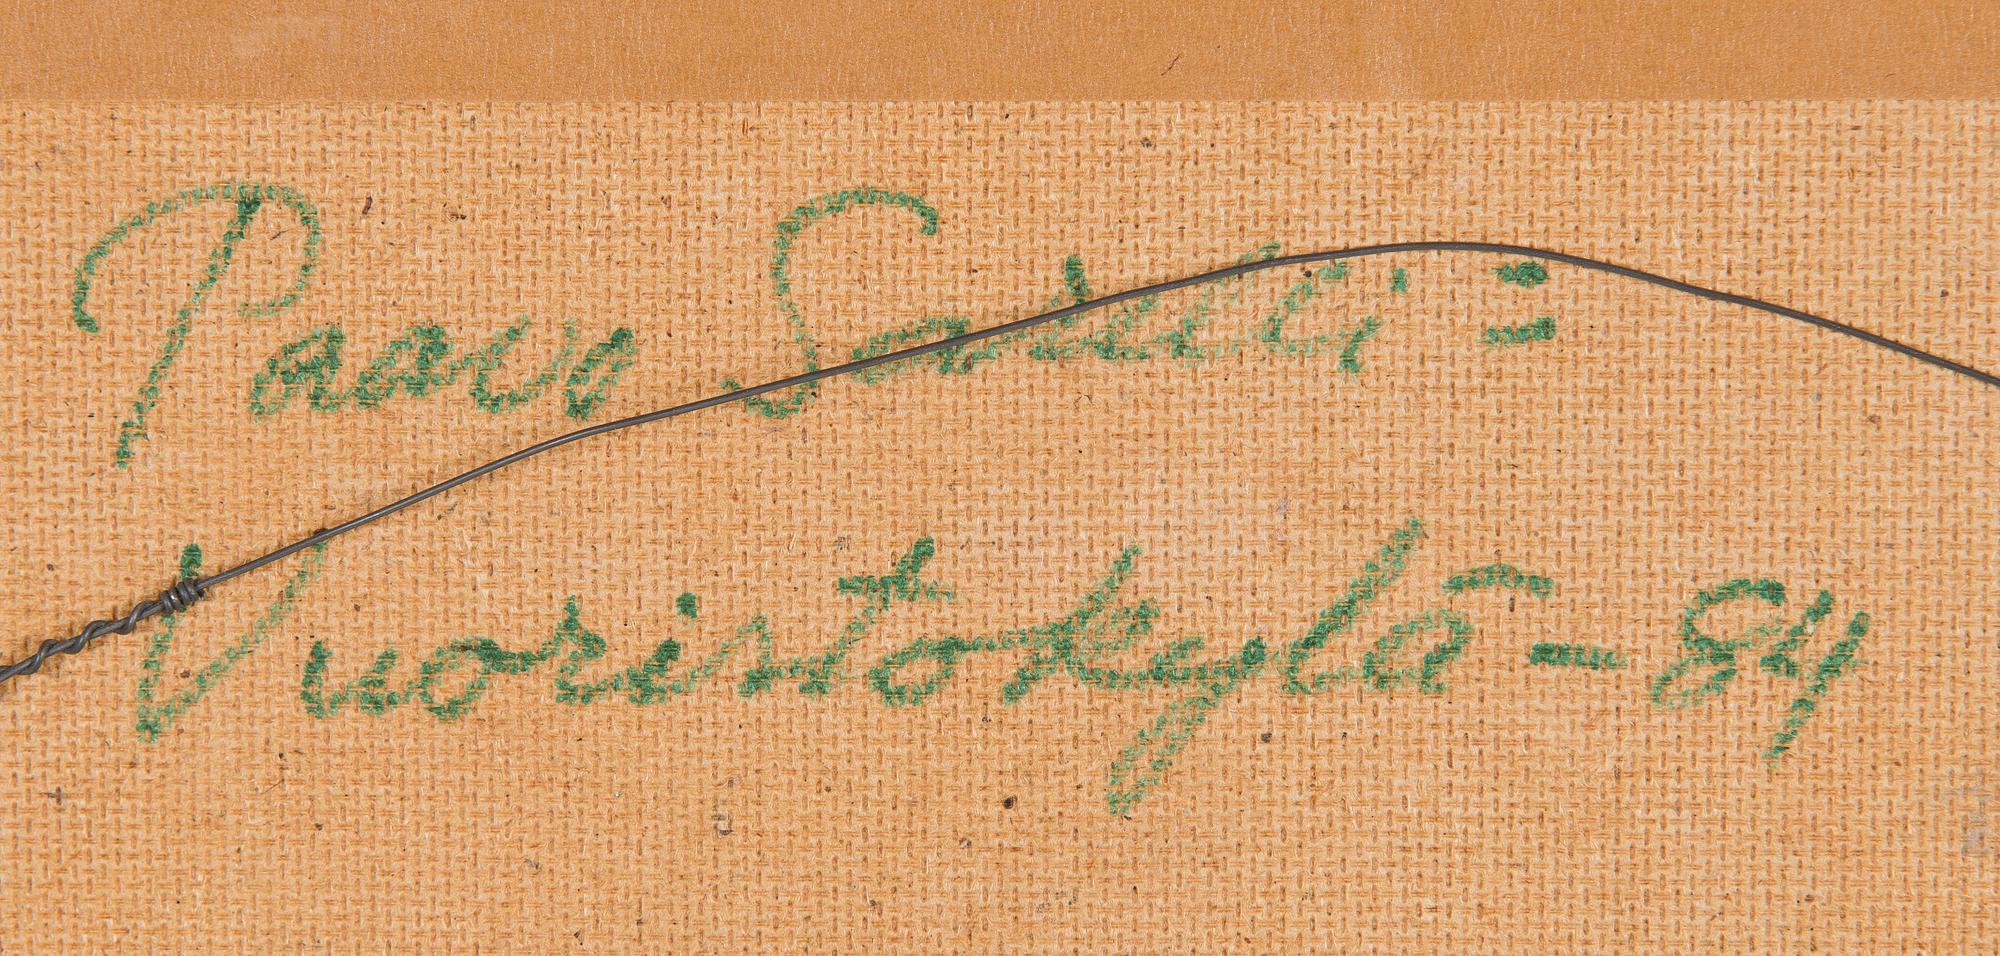 Paavo Sarelli =
Vuoristokylä - 84